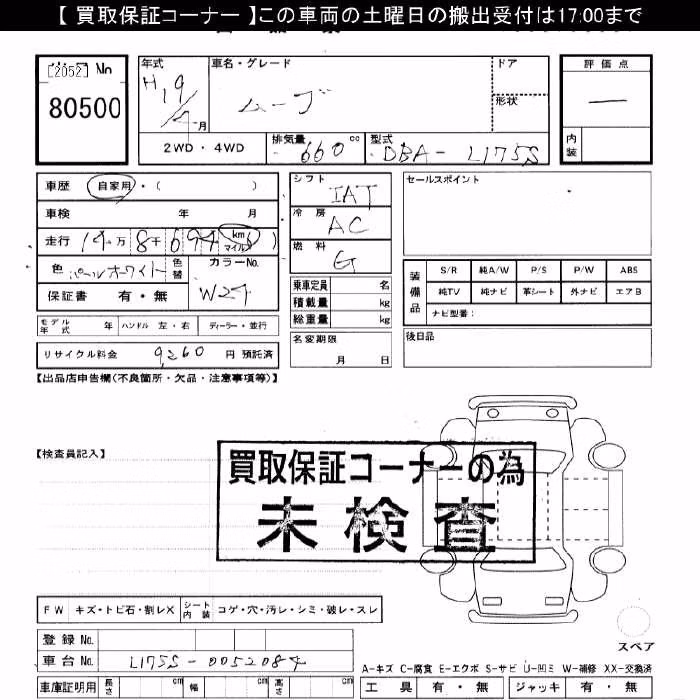 【 買取保証コーナー 】この車両の土曜日の搬出受付は17:00まで
[2052] No
80500
年式 H19/4月
車名・グレード ムーブ
ドア
形状
評価点
—
内装
2WD・4WD
排気量 660 cc
型式 DBA- L175S
車歴 自家用・( )
車検 年 月
走行 14万8千694 (km マイル)
色 パールホワイト 色替
カラーNo. W24
保証書 有・無
シフト IAT
冷房 AC
燃料 G
乗車定員 名
積載量 kg
総重量 kg
セールスポイント
装備品
S/R 純A/W P/S P/W ABS
純TV 純ナビ 革シート 外ナビ エアB
ナビ型番:
モデル年式 年 ハンドル 左・右 ディーラー・並行
名変期限 月 日
後日品
リサイクル料金 9,260 円 預託済
【出品店申告欄(不良箇所・欠品・注意事項等)】
【検査員記入】
買取保証コーナーの為
未検査
FW キズ・トビ石・割レX
シート内装 コゲ・穴・汚レ・シミ・破レ・スレ
スペア
登録 No.
車台 No. L175S-0052084
A-キズ C-腐食 E-エクボ S-サビ U-凹ミ W-補修 XX-交換済
車庫証明用 長さ cm 幅 cm 高さ cm
工具 有・無 ジャッキ 有・無